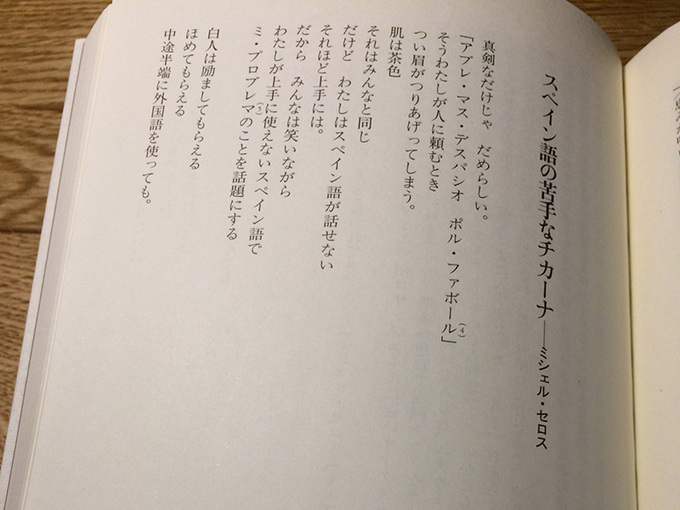 スペイン語の苦手なチカーナ――ミシェル・セロス
真剣なだけじゃ　だめらしい。
「アブレ・マス・デスパシオ　ポル・ファボール（4）」
そうわたしが人に頼むとき
つい眉がつりあげってしまう。
肌は茶色
それはみんなと同じ
だけど　わたしはスペイン語が話せない
それほど上手には。
だから　みんなは笑いながら
わたしが上手に使えないスペイン語で
ミ・プロブレマ（5）のことを話題にする
白人は励ましてもらえる
ほめてもらえる
中途半端に外国語を使っても。